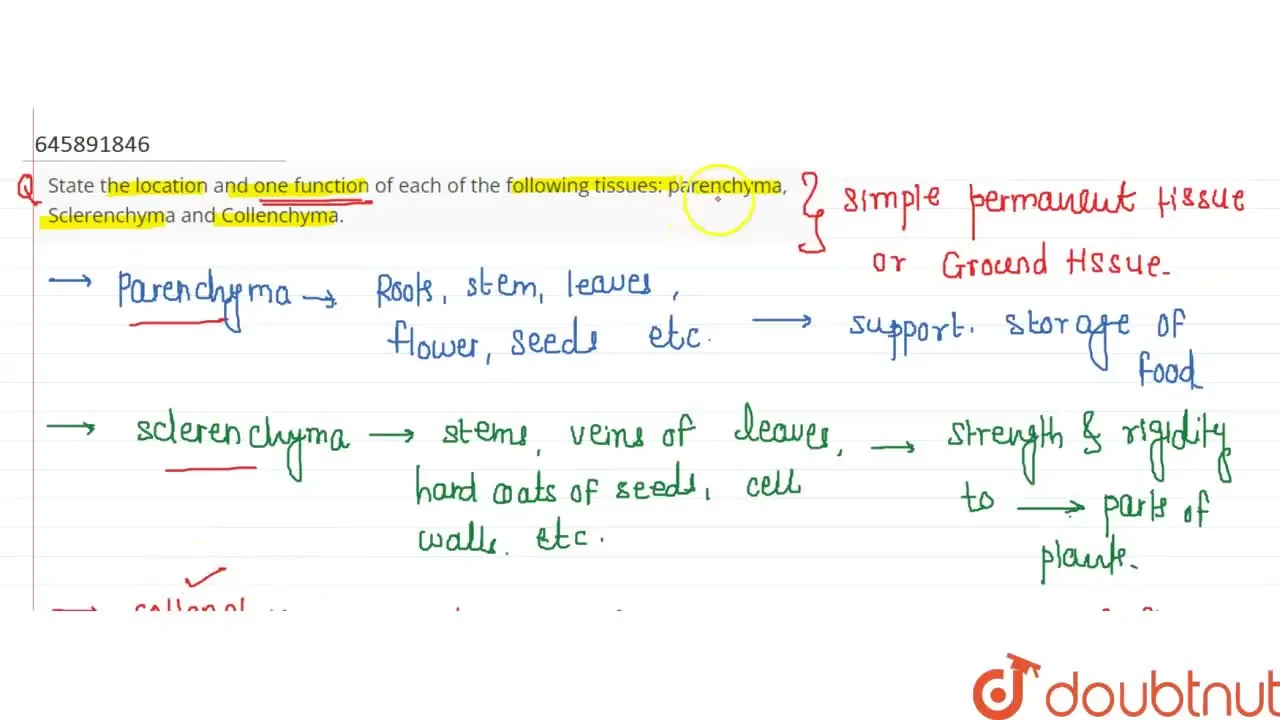 645891846
Q State the location and one function of each of the following tissues: parenchyma,
Sclerenchyma and Collenchyma.
simple permanent tissue
or Ground tissue.
→ Parenchyma → Roots, stem, leaves,
flower, seeds etc. → support. storage of
food
→ sclerenchyma → stems, veins of leaves, → strength & rigidity
hard coats of seeds, cell to → parts of
walls. etc. plants.
doubtnut